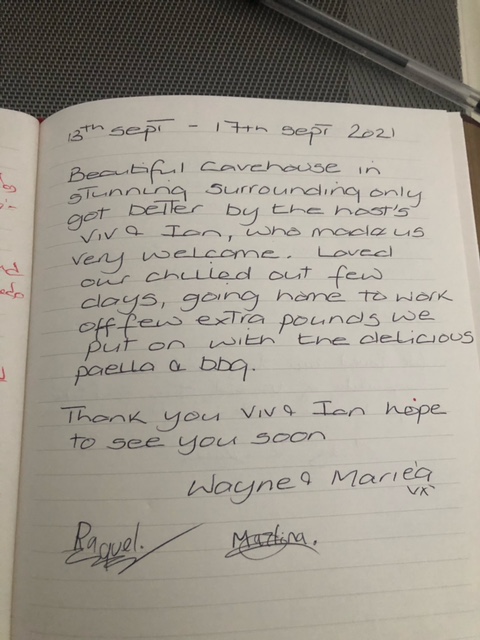 13th sept - 17th sept 2021
Beautiful cavehouse in
stunning surrounding only
got better by the host's
Viv & Ian, who made us
very welcome. Loved
our chilled out few
days, going home to work
off few extra pounds we
put on with the delicious
paella & bbq.
Thank you Viv & Ian hope
to see you soon
Wayne & Marie
Raquel.